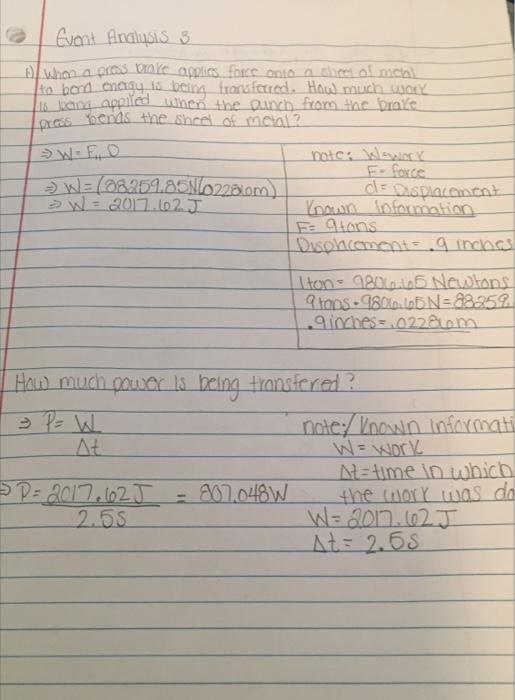 Event Analysis 3
A) When a press brake applies force onto a sheet of metal
to bend energy is being transferred. How much work
is being applied when the punch from the brake
press bends the sheet of metal?
⇒ W = F,, D
⇒ W = (88259.85N)(.02286m)
⇒ W = 2017.62J
note: W=work
F= force
d= Displacement
Known Information
F= 9tons
Displacement= .9 inches
1 ton= 9806.65 Newtons
9tons·9806.65N=88259.
.9inches=.02286m
How much power is being transfered?
⇒ P= W
Δt
⇒ P= 2017.62J = 807.048W
2.5s
note:/Known Informati
W= work
Δt=time in which
the work was do
W= 2017.62J
Δt= 2.5s